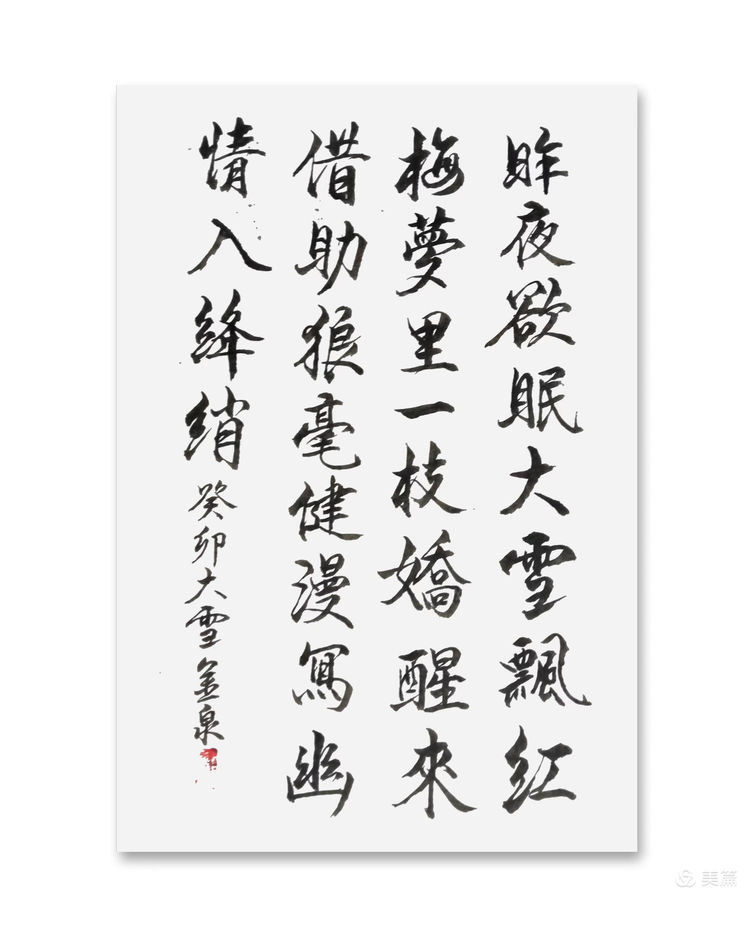 昨夜欲眠大雪飄紅
梅夢里一枝嬌醒來
借助狼毫健漫寫幽
情入絳綃
癸卯大雪金泉
美篇